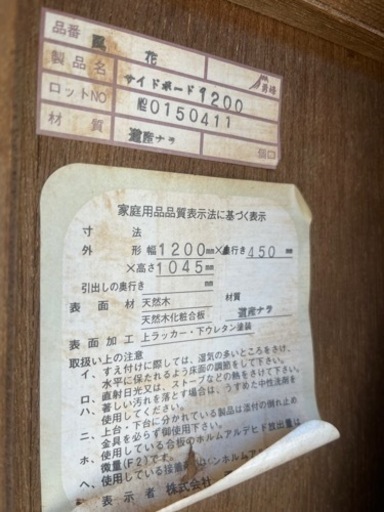 品番 風花
製品名 サイドボード1200
ロットNO 0150411
材質 道産ナラ
個口
家庭用品品質表示法に基づく表示
寸法
外形 幅1200㎜×奥行き450㎜
×高さ1045㎜
引出しの奥行き ㎜
表面材 天然木 材質
天然木化粧合板 道産ナラ
表面加工 上ラッカー・下ウレタン塗装
取扱い上の注意
イ、すえ付けに際しては、湿気の多いところをさけ、
水平に保たれるよう床面の調節をして下さい。
ロ、直射日光又は、ストーブなどの熱をさけて下さい。
ハ、著しい汚れを落とす場合は、うすめた中性洗剤を
使用してください。
ニ、上台・下台に分かれている製品は添付の倒れ止め
金具を必らず御使用下さい。
ホ、使用している合板のホルムアルデヒド放出量は
微量(F2)です。
ヘ、使用している接着剤
表示者 株式会社